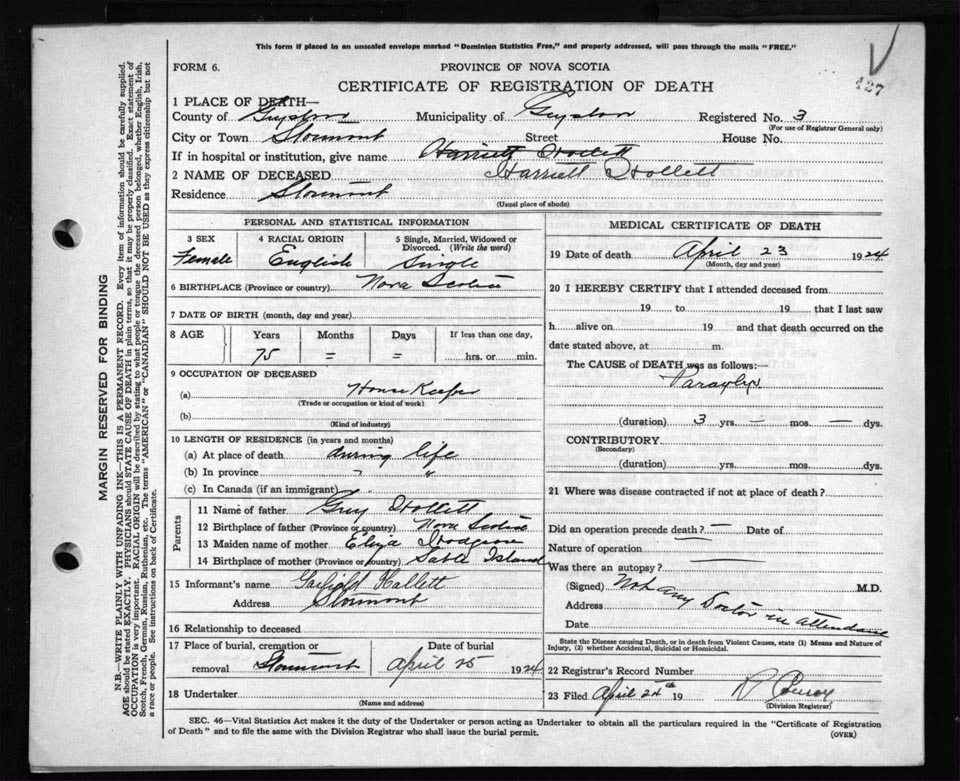 This form if placed in an unsealed envelope marked "Dominion Statistics Free," and properly addressed, will pass through the mails "FREE."
427
FORM 6.
PROVINCE OF NOVA SCOTIA
CERTIFICATE OF REGISTRATION OF DEATH
1 PLACE OF DEATH—
County of Guysboro Municipality of Guysboro Registered No. 3
(For use of Registrar General only)
City or Town Stormont Street House No.
If in hospital or institution, give name Harriett Hollett
2 NAME OF DECEASED Harriett Hollett
Residence Stormont
(Usual place of abode)
PERSONAL AND STATISTICAL INFORMATION
3 SEX 4 RACIAL ORIGIN 5 Single, Married, Widowed or Divorced. (Write the word)
Female English Single
6 BIRTHPLACE (Province or country) Nova Scotia
7 DATE OF BIRTH (month, day and year)
8 AGE Years Months Days If less than one day,
75 = = hrs. or min.
9 OCCUPATION OF DECEASED
(a) House Keeper
(Trade or occupation or kind of work)
(b)
(Kind of industry)
10 LENGTH OF RESIDENCE (in years and months)
(a) At place of death during life
(b) In province " "
(c) In Canada (if an immigrant)
Parents
11 Name of father Guy Hollett
12 Birthplace of father (Province or country) Nova Scotia
13 Maiden name of mother Eliza
14 Birthplace of mother (Province or country) Sable Island
15 Informant's name Garfield Hallett
Address Stormont
16 Relationship to deceased
17 Place of burial, cremation or Date of burial
removal Stormont April 25 1924
18 Undertaker
(Name and address)
MEDICAL CERTIFICATE OF DEATH
19 Date of death April 23 1924
(Month, day and year)
20 I HEREBY CERTIFY that I attended deceased from
19 to 19 that I last saw
h alive on 19 and that death occurred on the
date stated above, at m.
The CAUSE OF DEATH was as follows:—
(duration) 3 yrs. — mos. — dys.
CONTRIBUTORY
(Secondary)
(duration) yrs. mos. dys.
21 Where was disease contracted if not at place of death?
Did an operation precede death? — Date of
Nature of operation
Was there an autopsy?
(Signed) Not any Doctor in attendance M.D.
Address
Date
State the Disease causing Death, or in death from Violent Causes, state (1) Means and Nature of
Injury, (2) whether Accidental, Suicidal or Homicidal.
22 Registrar's Record Number
23 Filed April 24th 19
(Division Registrar)
SEC. 46—Vital Statistics Act makes it the duty of the Undertaker or person acting as Undertaker to obtain all the particulars required in the "Certificate of Registration
of Death" and to file the same with the Division Registrar who shall issue the burial permit.
(OVER)
MARGIN RESERVED FOR BINDING
N.B.—WRITE PLAINLY WITH UNFADING INK—THIS IS A PERMANENT RECORD. Every item of information should be carefully supplied.
AGE should be stated EXACTLY. PHYSICIANS should STATE CAUSE OF DEATH in plain terms, so that it may be properly classified. Exact statement of
OCCUPATION is very important. RACIAL ORIGIN will be described by stating to what people or tongue the deceased person belonged, whether English, Irish,
Scotch, French, German, Russian, Ruthenian, etc. The terms "AMERICAN" or "CANADIAN" SHOULD NOT BE USED as they express citizenship but not
a race or people. See instructions on back of Certificate.